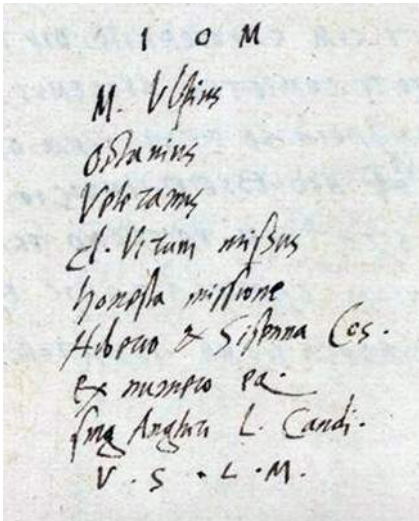 I O M
M. Ulpius
Octavius
Veteranus
missus
honesta missione
Hiberio & Sisenna Cos.
ex numero eq.
sing L. Candi.
V. S. L. M.